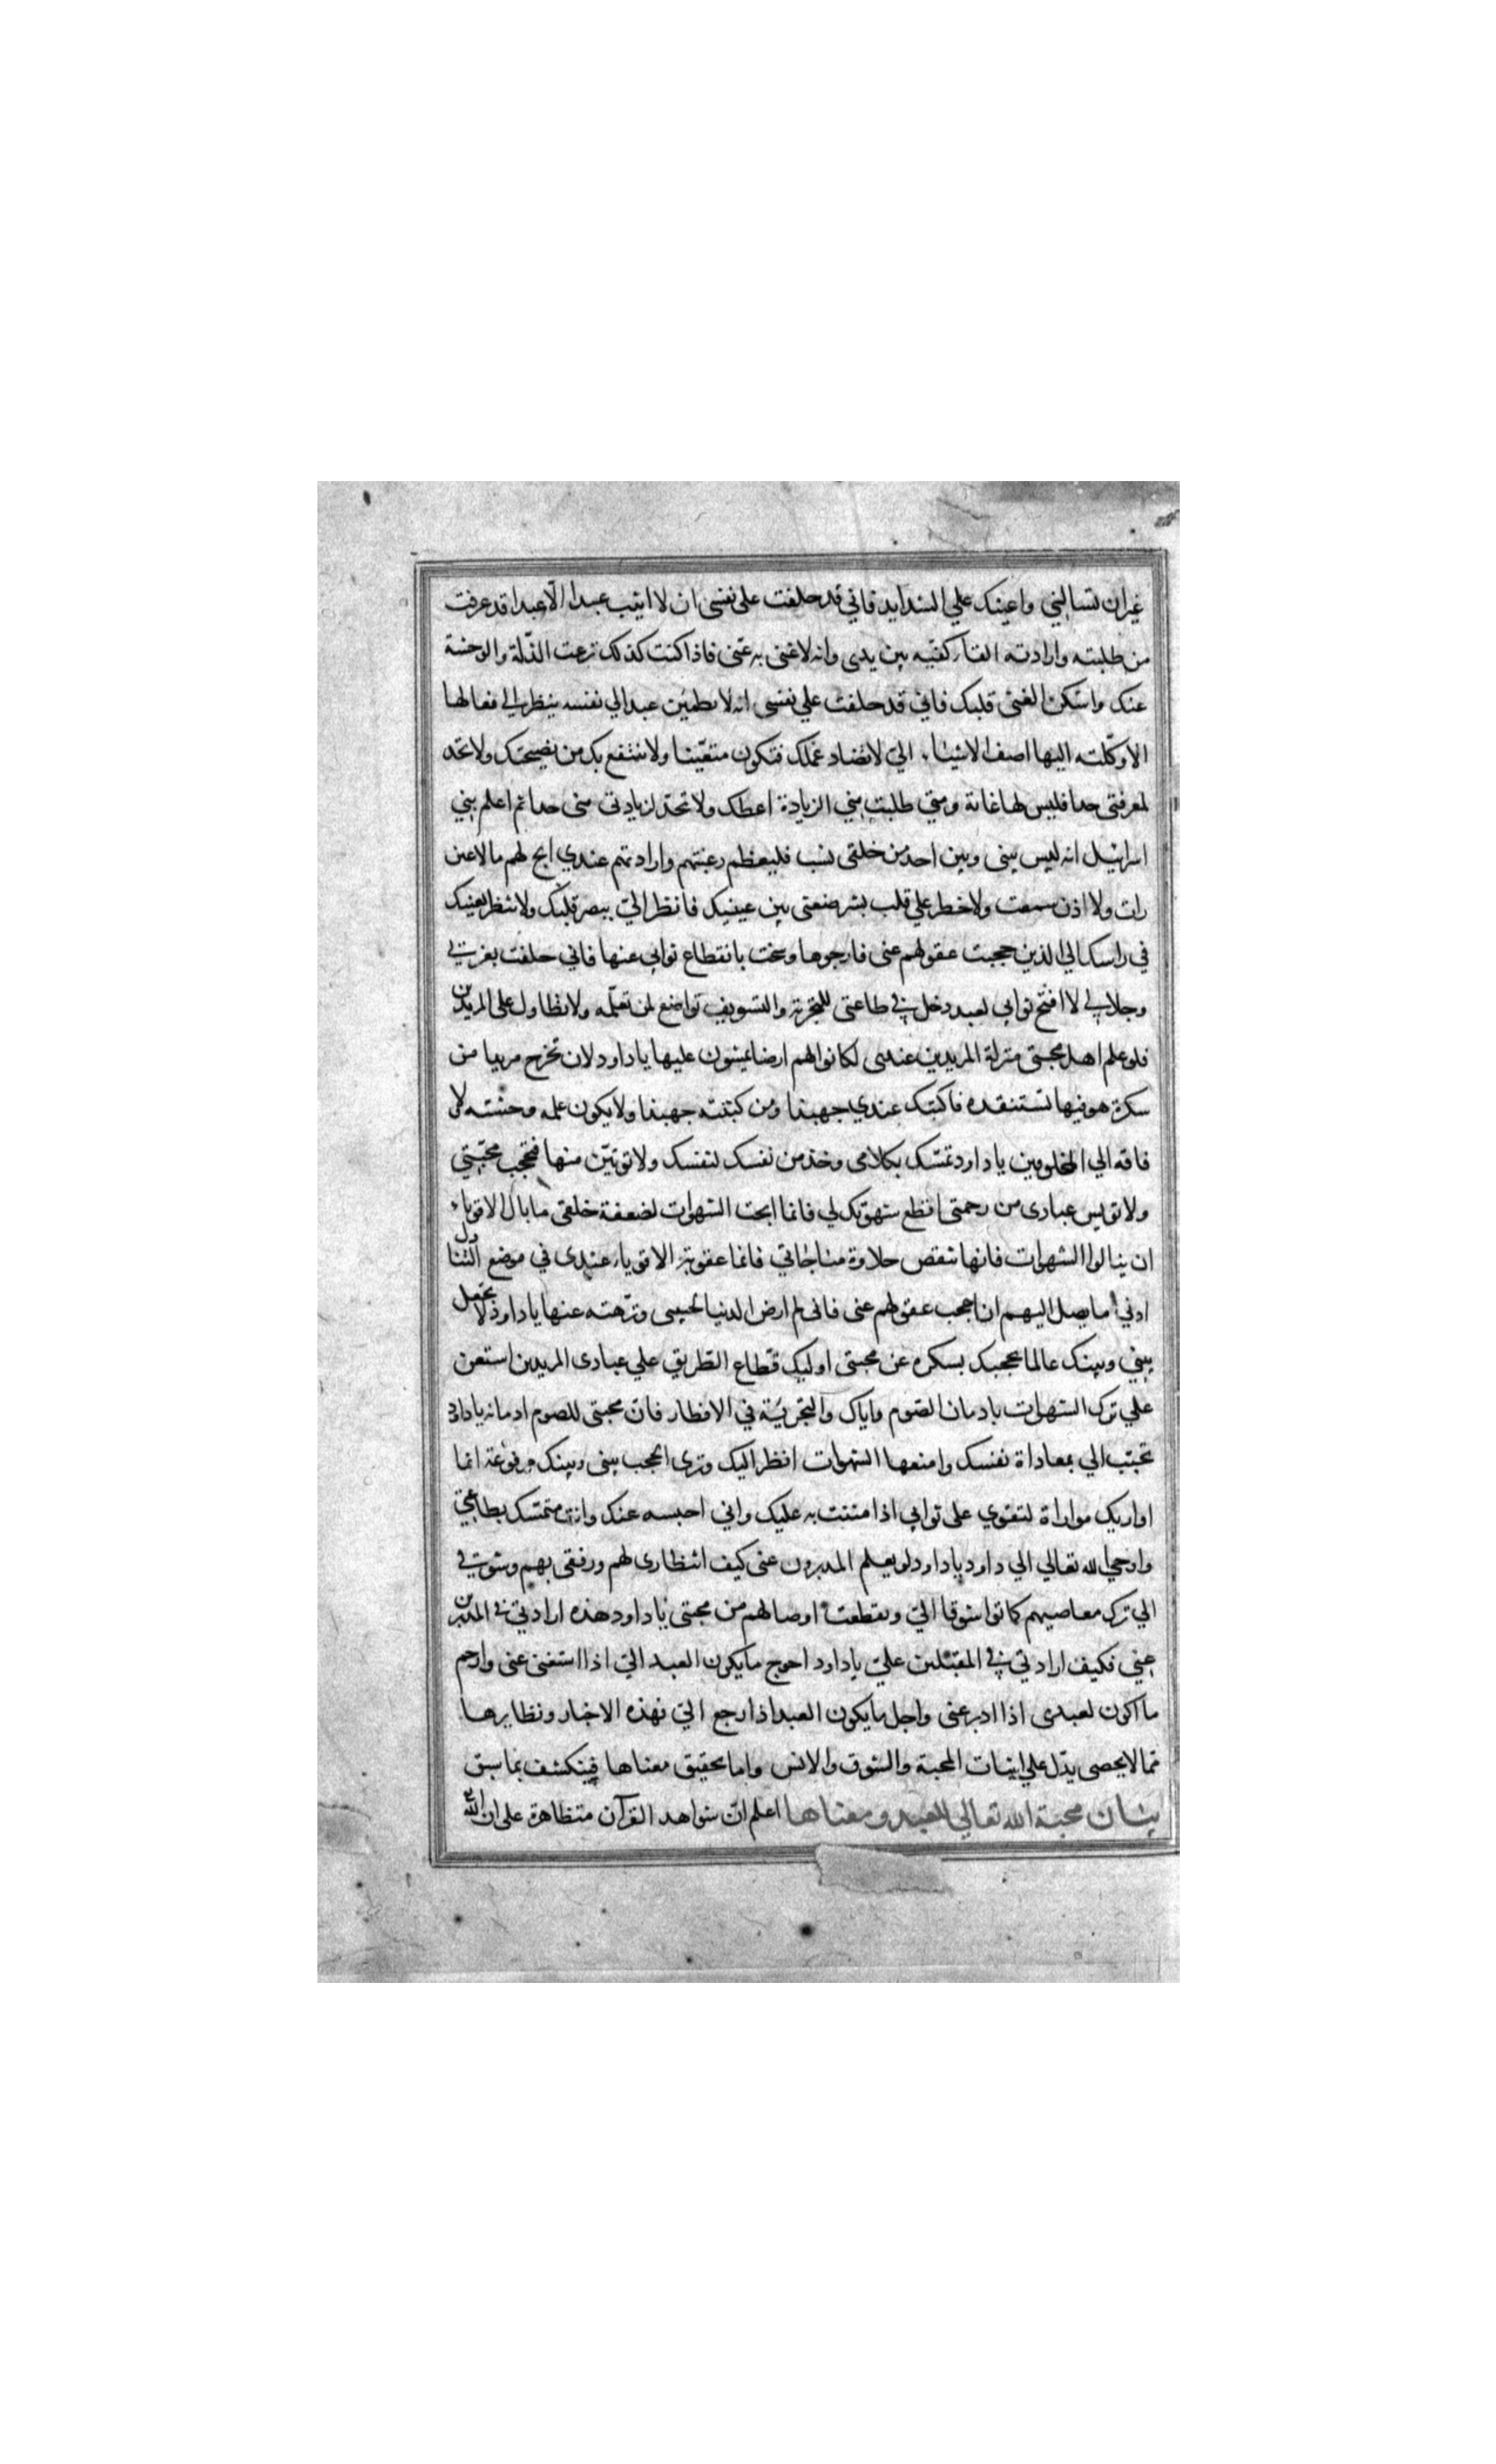 غيران تسالني واعينك علي الشدايد فاني قد حلفت على نفسى ان لا اثيب عبدا الّا عبدا قد عرفت
من طلبته وارادته القاء كفيه بين يدى وانه لا غنى به عنى فاذا كنت كذلك نزعت الذلّة والوحشة
عنك واسكن الغنى قلبك فاني قد حلفت علي نفسى انه لا يطمئن عبد الي نفسه ينظر الي فعالها
الا وكلته اليها اضف الاشياء الي لا تضاد عملك فتكون متعنّيا ولا ينتفع بك من يصحبك ولا تجد
لمعرفتى حدا فليس لها غاية ومتي طلبت مني الزيادة اعطك ولا تجد لزيادتى منى حدا ثم اعلم بني
اسرائيل انه ليس بينى وبين احد من خلقى نسب فليعظم رغبتهم وارادتهم عندي ابح لهم ما لا عين
رات ولا اذن سمعت ولا خطر علي قلب بشر ضعنى بين عينيك فانظر اليّ ببصر قلبك ولا تنظر بعينيك
في راسك الي الذين حجبت عقولهم عنى فارجوها وسخت بانقطاع ثوابي عنها فاني حلفت بعزتي
وجلالي لا افتح ثوابي لعبد دخل في طاعتى للتجربة والتسويف تواضع لمن تعلّمه ولا تطاول على المريدين
فلو علم اهل محبتى منزلة المريدين عندى لكانوا لهم ارضا يمشون عليها يا داود لان تخرج مريدا من
سكرة هو فيها تستنقذه فاكتبك عندي جهبذا ومن كتبته جهبذا ولا يكون عليه وحشته ولا
فاقه الي المخلوقين يا داود تمسّك بكلامى وخذ من نفسك لنفسك ولا توتينّ منها فتحجب محبّتي
ولا تويس عبادى من رحمتى اقطع شهوتك لي فانما ابحت الشهوات لضعفة خلقى ما بال الاقوياء
ان ينالوا الشهوات فانها تنقص حلاوة مناجاتي فانما عقوبة الاقوياء عندى في موضع التناول
ادني ما يصل اليهم ان احجب عقولهم عنى فانى لم ارض الدنيا لحبيبى ونزّهته عنها يا داود لا تجعل
بيني وبينك عالما يحجبك بسكره عن محبتى اوليك قطّاع الطريق علي عبادى المريدين استعن
علي ترك الشهوات بادمان الصّوم واياك والتجربة في الافطار فان محبتى للصوم ادمانه يا داود
تحبّب الي بمعاداة نفسك وامنعها الشهوات انظر اليك وترى الحجب بينى وبينك مرفوعة انما
اداريك مداراة لتقوي على ثوابي اذا مننت به عليك واني احبسه عنك وانت متمسّك بطاعتي
واوحي الله تعالي الي داود يا داود لو يعلم المدبرون عنى كيف انتظارى لهم ورفقى بهم وشوقي
الي ترك معاصيهم لماتوا شوقا اليّ وتقطعت اوصالهم من محبتى يا داود هذه ارادتي في المدبرين
عني فكيف ارادتي في المقبلين عليّ يا داود احوج ما يكون العبد الي اذا استغنى عنى وارحم
ما اكون لعبدى اذا ادبر عنى واجل ما يكون العبد اذا رجع اليّ فهذه الاخبار ونظايرها
ممّا لا يحصى يدّل علي اثبات المحبة والشوق والانس وانما تحقيق معناها فينكشف بما سبق
بيان محبة الله تعالي للعبد ومعناها اعلم انّ شواهد القرآن متظاهرة على ان الله